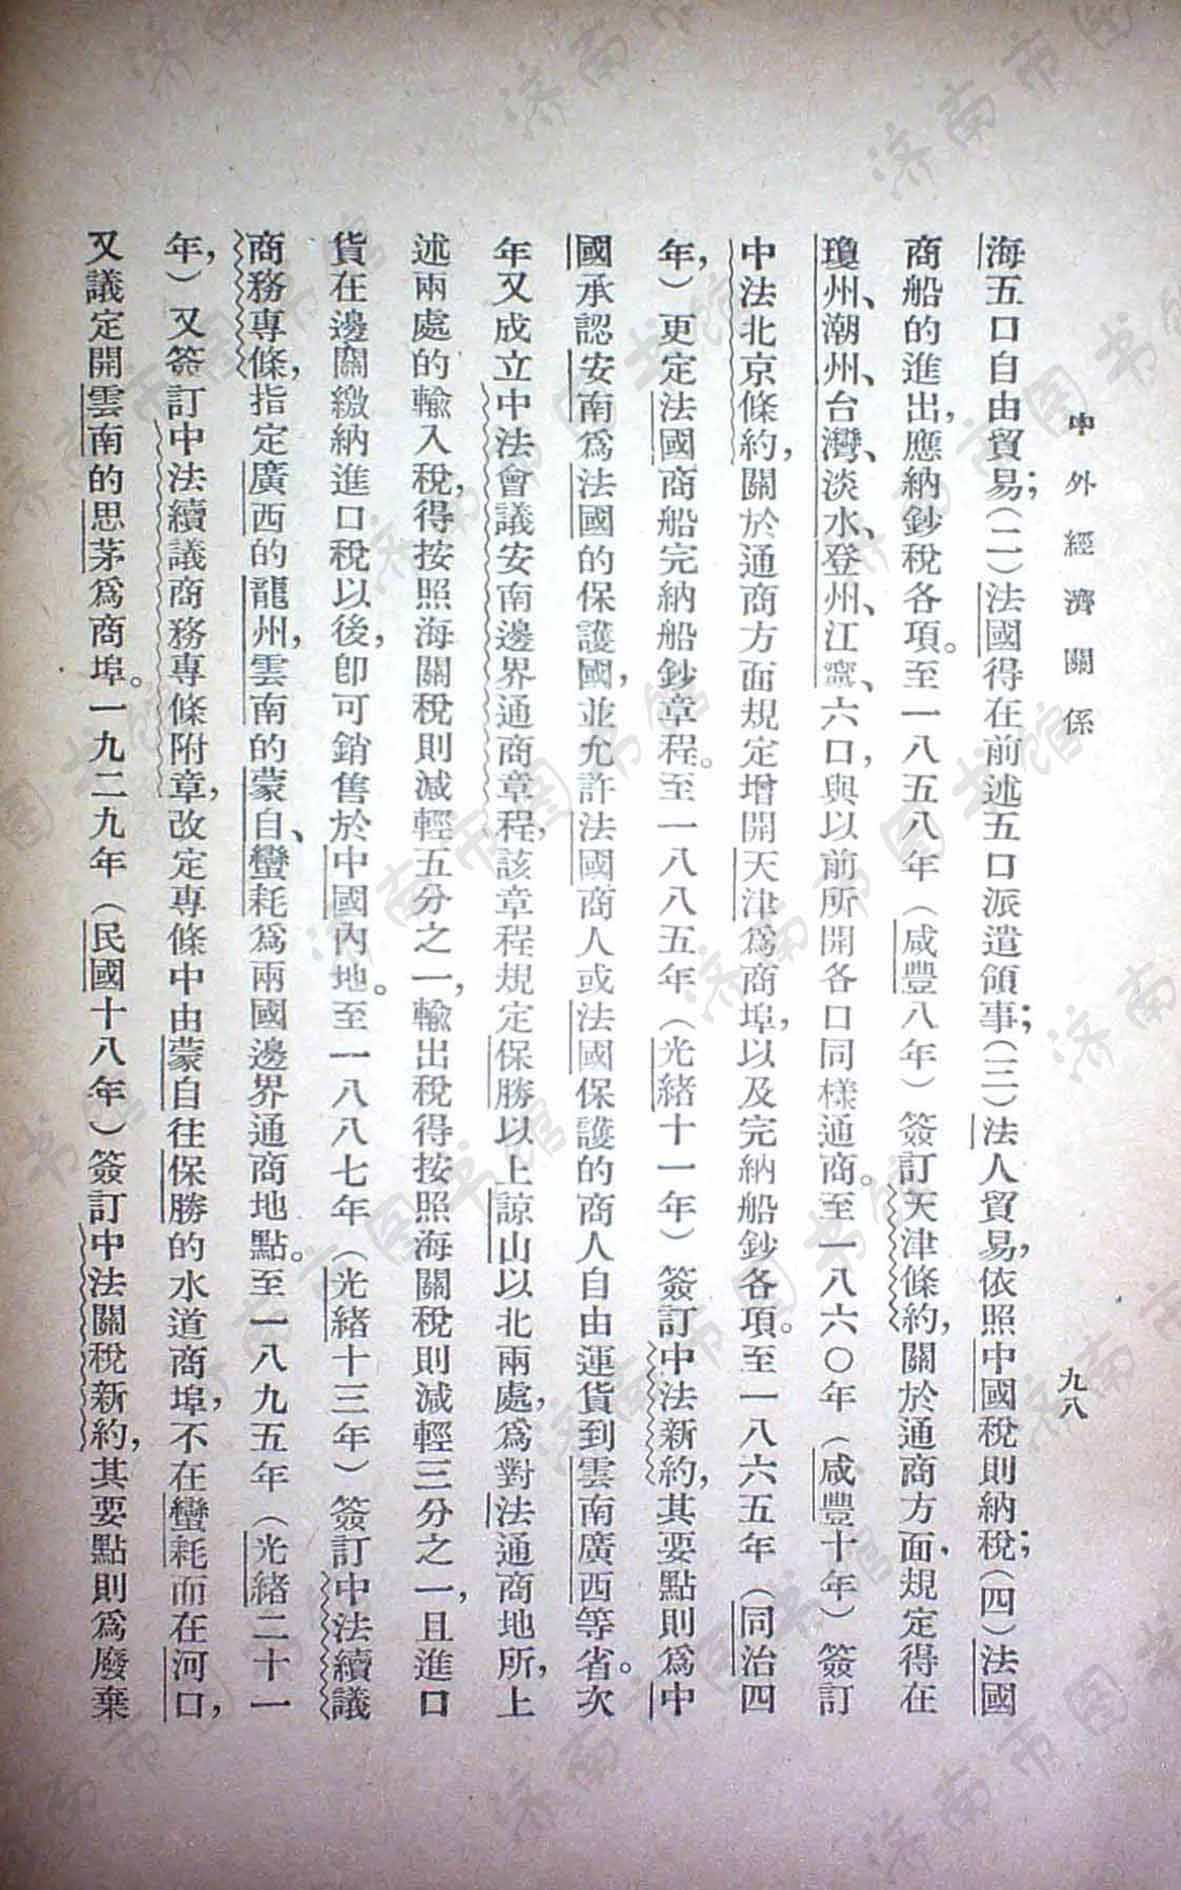 中外經濟關係
九八
海五口自由貿易；（二）法國得在前述五口派遣領事；（三）法人貿易，依照中國稅則納稅；（四）法國
商船的進出，應納鈔稅各項。至一八五八年（咸豐八年）簽訂天津條約，關於通商方面，規定得在
瓊州、潮州、台灣、淡水、登州、江寧、六口，與以前所開各口同樣通商。至一八六〇年（咸豐十年）簽訂
中法北京條約，關於通商方面規定增開天津爲商埠，以及完納船鈔各項。至一八六五年（同治四
年，）更定法國商船完納船鈔章程。至一八八五年（光緒十一年）簽訂中法新約，其要點則爲中
國承認安南爲法國的保護國，並允許法國商人或法國保護的商人自由運貨到雲南廣西等省。次
年又成立中法會議安南邊界通商章程，該章程規定保勝以上諒山以北兩處，爲對法通商地所，上
述兩處的輸入稅，得按照海關稅則減輕五分之一，輸出稅得按照海關稅則減輕三分之一，且進口
貨在邊關繳納進口稅以後，卽可銷售於中國內地。至一八八七年（光緒十三年）簽訂中法續議
商務專條，指定廣西的龍州，雲南的蒙自、蠻耗爲兩國邊界通商地點。至一八九五年（光緒二十一
年，）又簽訂中法續議商務專條附章，改定專條中由蒙自往保勝的水道商埠，不在蠻耗而在河口，
又議定開雲南的思茅爲商埠。一九二九年（民國十八年）簽訂中法關稅新約，其要點則爲廢棄
济南市图书馆